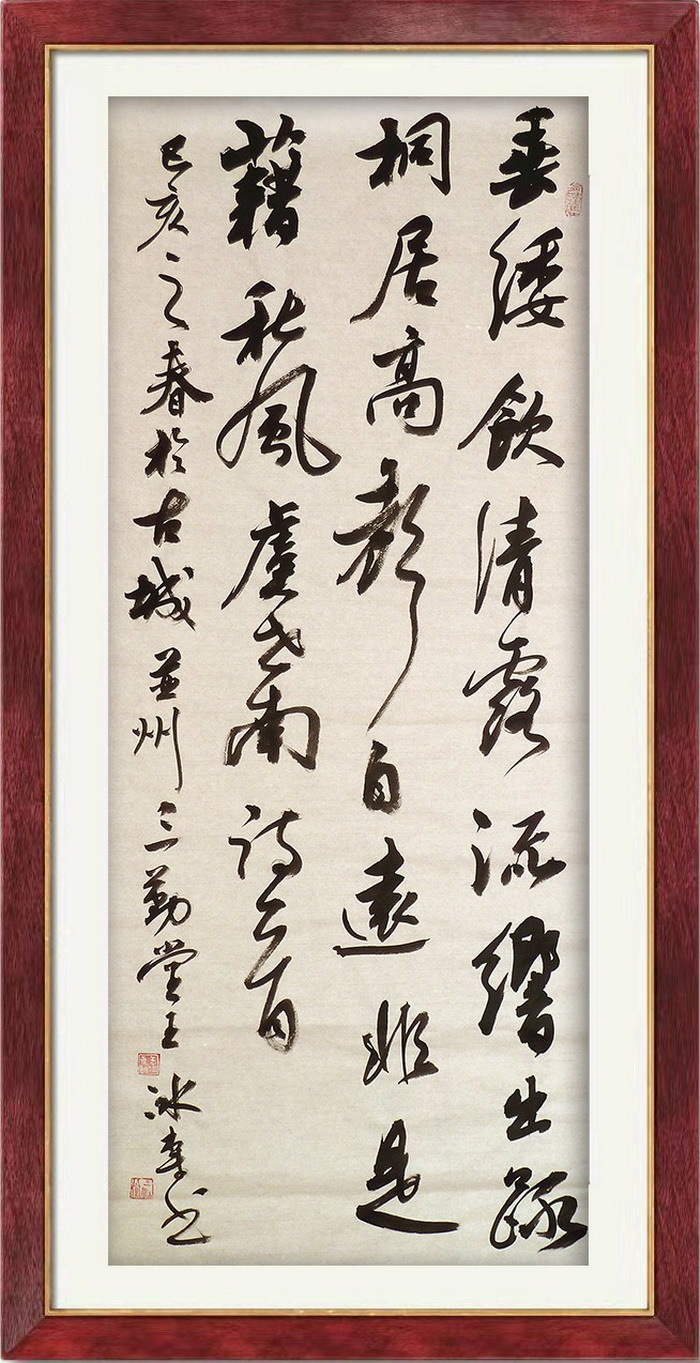 垂緌飲清露流響出踈
桐居高聲自遠非是
藉秋風虞世南詩一首
己亥之春於古城並州三勤堂王冰書